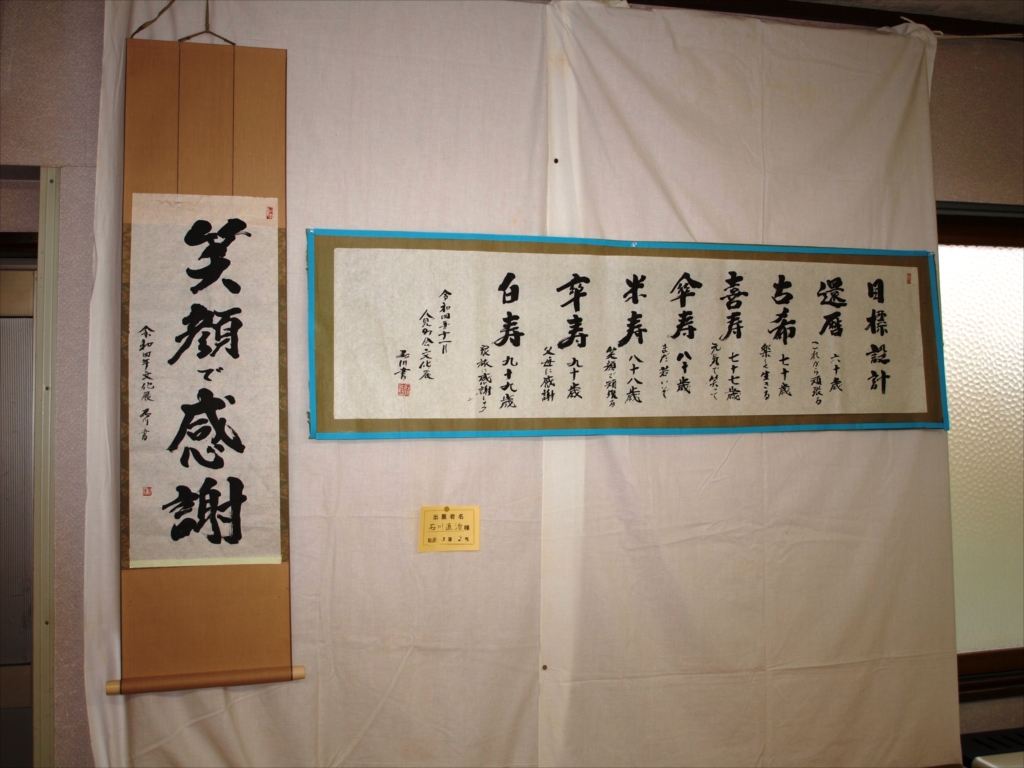 笑顔で感謝
令和四年文化展
目標設計
還暦 六十歳
これから頑張る
古希 七十歳
楽しく生きる
喜寿 七十七歳
元気で笑って
傘寿 八十歳
まだ若いぞ
米寿 八十八歳
笑顔で頑張る
卒寿 九十歳
父母に感謝
白寿 九十九歳
家族に感謝
令和四年十一月
文化展
石川書
出展者名
石川
様